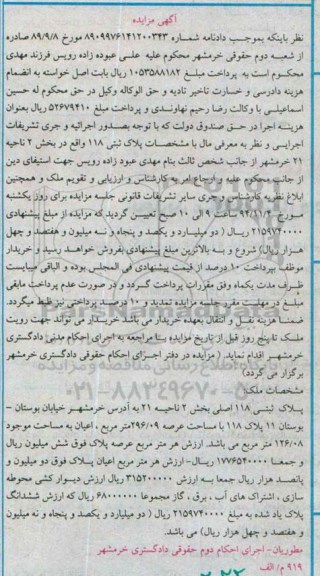 آگهی مزایده
نظر باینکه بموجب دادنامه شماره ۸۹۰۹۹۷۶۱۴۱۲۰۰۳۴۳ مورخ ۸۹/۹/۸ صادره
از شعبه دوم حقوقی خرمشهر محکوم علیه علی عبوده زاده رویس فرزند مهدی
محکوم است به پرداخت مبلغ ۱۰۵۳۵۸۸۱۸۲ ریال بابت اصل خواسته به انضمام
هزینه دادرسی و خسارت تاخیر تادیه و حق الوکاله وکیل در حق محکوم له حسین
اسماعیلی با وکالت رضا رحیم نهاوندی و پرداخت مبلغ ۵۲۶۷۹۴۱۰ ریال بعنوان
هزینه اجرا در حق صندوق دولت که با توجه بصدور اجرائیه و جری تشریفات
اجرایی و نظر به معرفی مال با مشخصات پلاک ثبتی ۱۱۸ واقع در بخش ۲ ناحیه
۲۱ خرمشهر از جانب شخص ثالث بنام مهدی عبود زاده رویس جهت استیفای دین
از جانب محکوم علیه و ارجاع امر به کارشناس و ارزیابی و تقویم ملک و همچنین
ابلاغ نظریه کارشناس و جری سایر تشریفات قانونی جلسه مزایده برای روز یکشنبه
مورخ ۹۴/۱۱/۴ ساعت ۹ الی ۱۰ صبح تعیین گردید که مزایده از مبلغ پیشنهادی
۲۱۵۹۷۴۰۰۰۰ ریال ( دو میلیارد و یکصد و پنجاه و نه میلیون و هفتصد و چهل
هزار ریال) شروع و به بالاترین مبلغ پیشنهادی بفروش خواهد رسید و خریدار
موظف بپرداخت ۱۰ درصد از قیمت پیشنهادی فی المجلس بوده و الباقی میبایست
ظرف مدت یکماه وفق مقررات پرداخت گردد و در صورت عدم پرداخت مابقی
مبلغ در مهلت مقرر جلسه مزایده تمدید و ۱۰ درصد پرداختی نیز ظبط میگردد.
ضمنا هزینه نقل و انتقال بعهده خریدار می باشد خریدار می تواند جهت رویت
ملک تا پنج روز قبل از تاریخ مزایده با مراجعه به اجرای احکام مدنی دادگستری
خرمشهر اقدام نماید ( مزایده در دفتر اجرای احکام حقوقی دادگستری خرمشهر
برگزار می گردد)
مشخصات ملک:
پلاک ثبتی ۱۱۸ اصلی بخش ۲ ناحیه ۲۱ به آدرس خرمشهر خیابان بوستان -
بوستان ۱۱ پلاک ۱۱۸ با مساحت عرصه ۲۹۶/۰۹ متر مربع ، اعیان به مساحت موجود
۱۲۶/۰۸ متر مربع می باشد. ارزش هر متر مربع عرصه پلاک فوق شش میلیون ریال
و جمعا ۱۷۷۶۵۴۰۰۰۰ ریال- ارزش هر متر مربع اعیان پلاک فوق دو میلیون و
پانصد هزار ریال جمعا به ارزش ۳۱۵۲۰۰۰۰۰ ریال ارزش دیوار کشی محوطه
سازی ، اشتراک های آب ، برق ، گاز مجموعا ۶۸۰۰۰۰۰۰ ریال که ارزش ششدانگ
پلاک یاد شده به مبلغ ۲۱۵۹۷۴۰۰۰۰ ریال ( دو میلیارد و یکصد و پنجاه و نه میلیون
و هفتصد و چهل هزار ریال) می باشد.
مطوریان- اجرای احکام دوم حقوقی دادگستری خرمشهر
۹۱۹ م/ الف